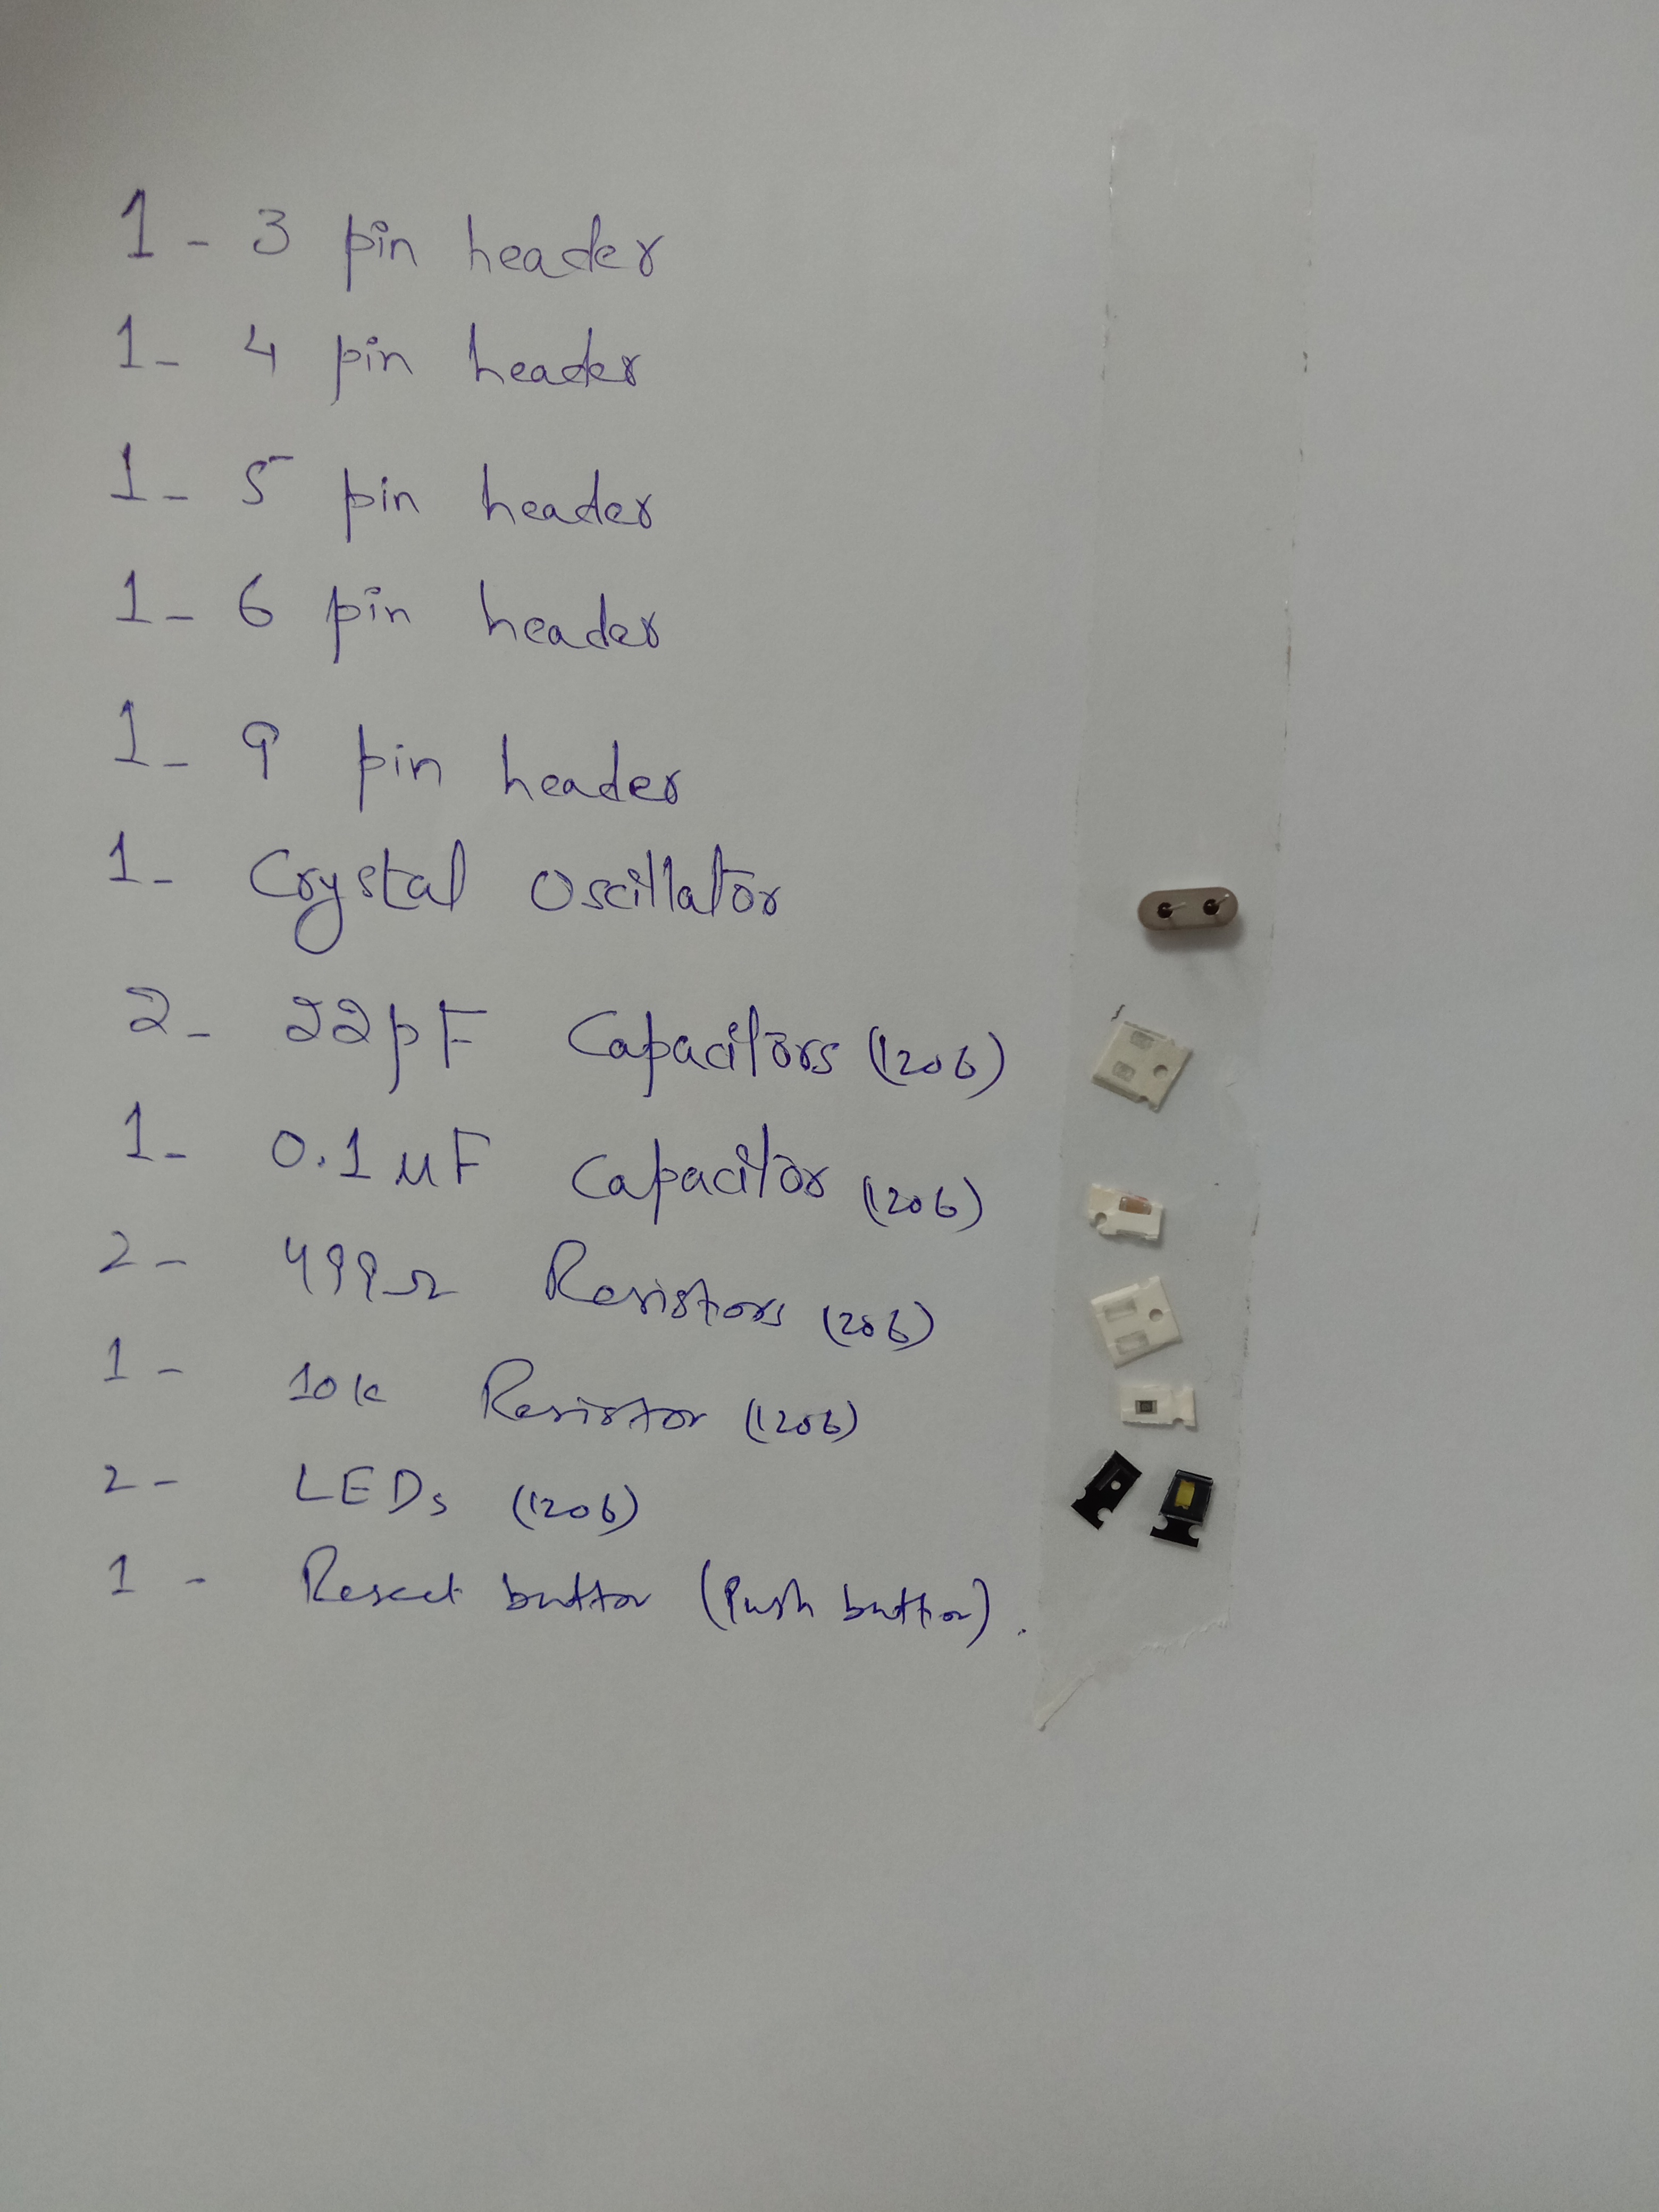 1 - 3 pin header
1 - 4 pin header
1 - 5 pin header
1 - 6 pin header
1 - 9 pin header
1 - Crystal Oscillator
2 - 22pF Capacitors (1206)
1 - 0.1 uF Capacitor (1206)
2 - 499Ω Resistors (1206)
1 - 10k Resistor (1206)
2 - LEDs (1206)
1 - Reset button (Push button).